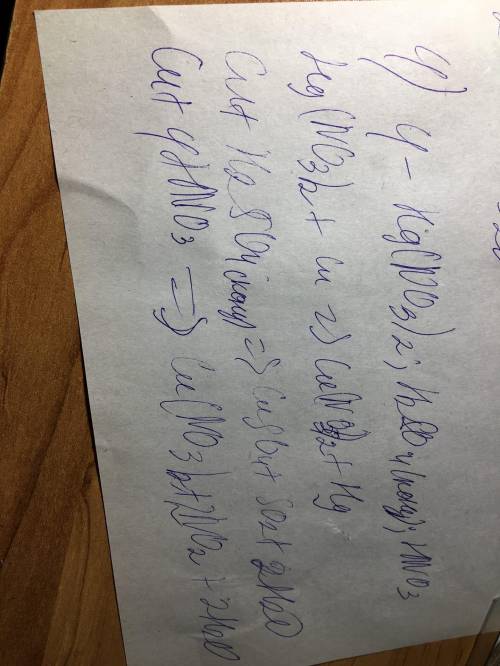 4) 4 - Hg(NO3)2; H2SO4(конц); HNO3
Hg(NO3)2 + Cu => Cu(NO3)2 + Hg
Cu + H2SO4(конц) => CuSO4 + SO2 + 2H2O
Cu + 4HNO3 => Cu(NO3)2 + 2NO2 + 2H2O